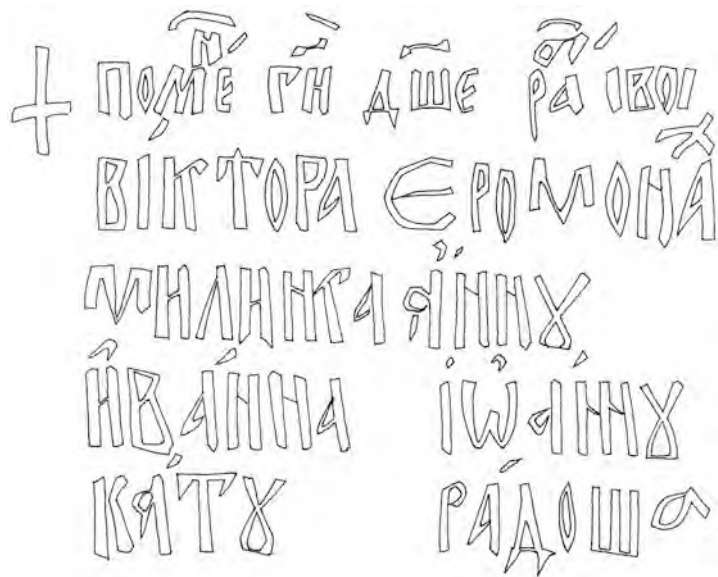 ✝ ПОМЕⷩ҇ ГИ҃ ДШ҃Е РАⷠ҇ ІВОІ
ВІКТОРА ЄРОМОНАⷯ
МИЛИНКА А҆ННꙊ
И҆ВА́ННА ІѠА́ННꙊ
КА́ТꙊ РА́ДОША